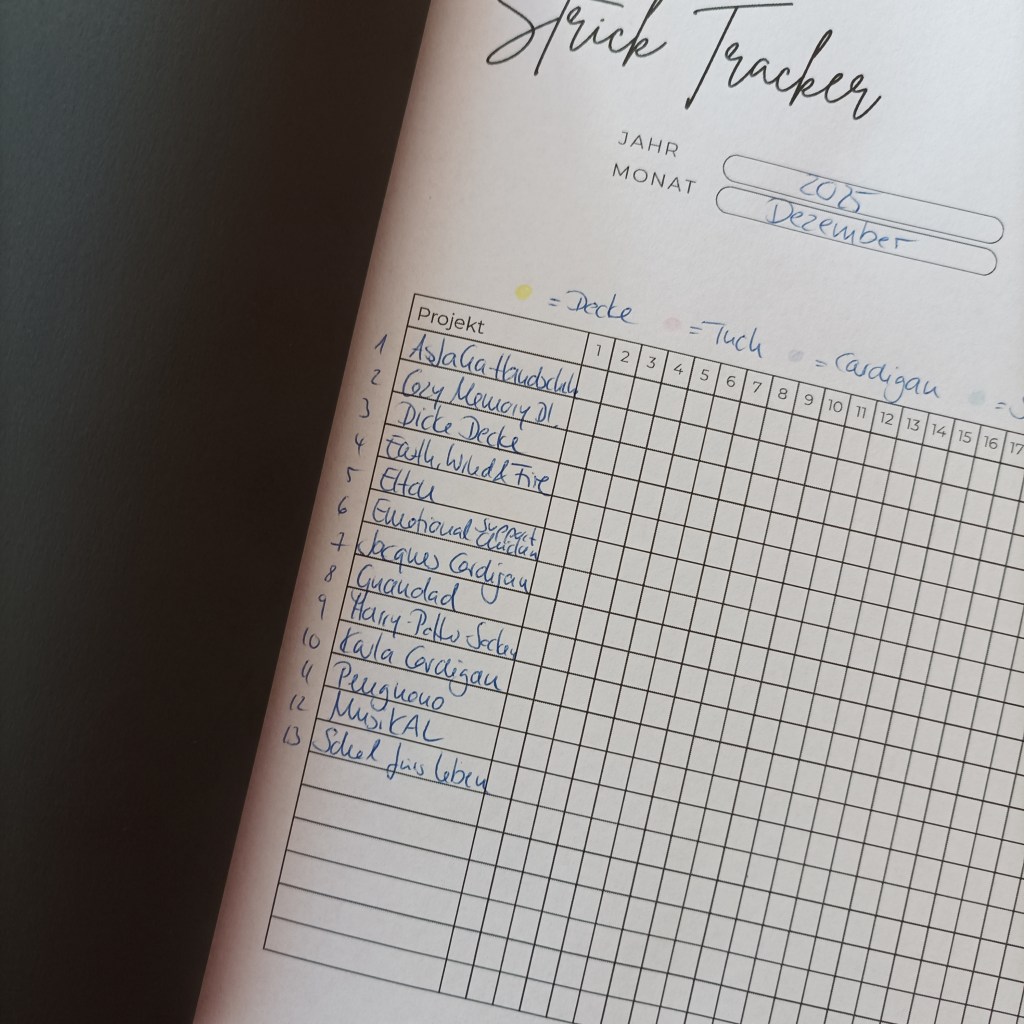 Strick Tracker
JAHR 2025
MONAT Dezember
= Decke = Tuch = Cardigan =
Projekt 1 2 3 4 5 6 7 8 9 10 11 12 13 14 15 16 17
1
2 Cozy Memory Bl.
3 Dicke Decke
4 Earth, Wind & Fire
5
6 Emotional Support Chicken
7 Jacques Cardigan
8
9 Harry-Potter-Socken
10 Karla Cardigan
11 Penguono
12 MusiKAL
13 Schal fürs Leben